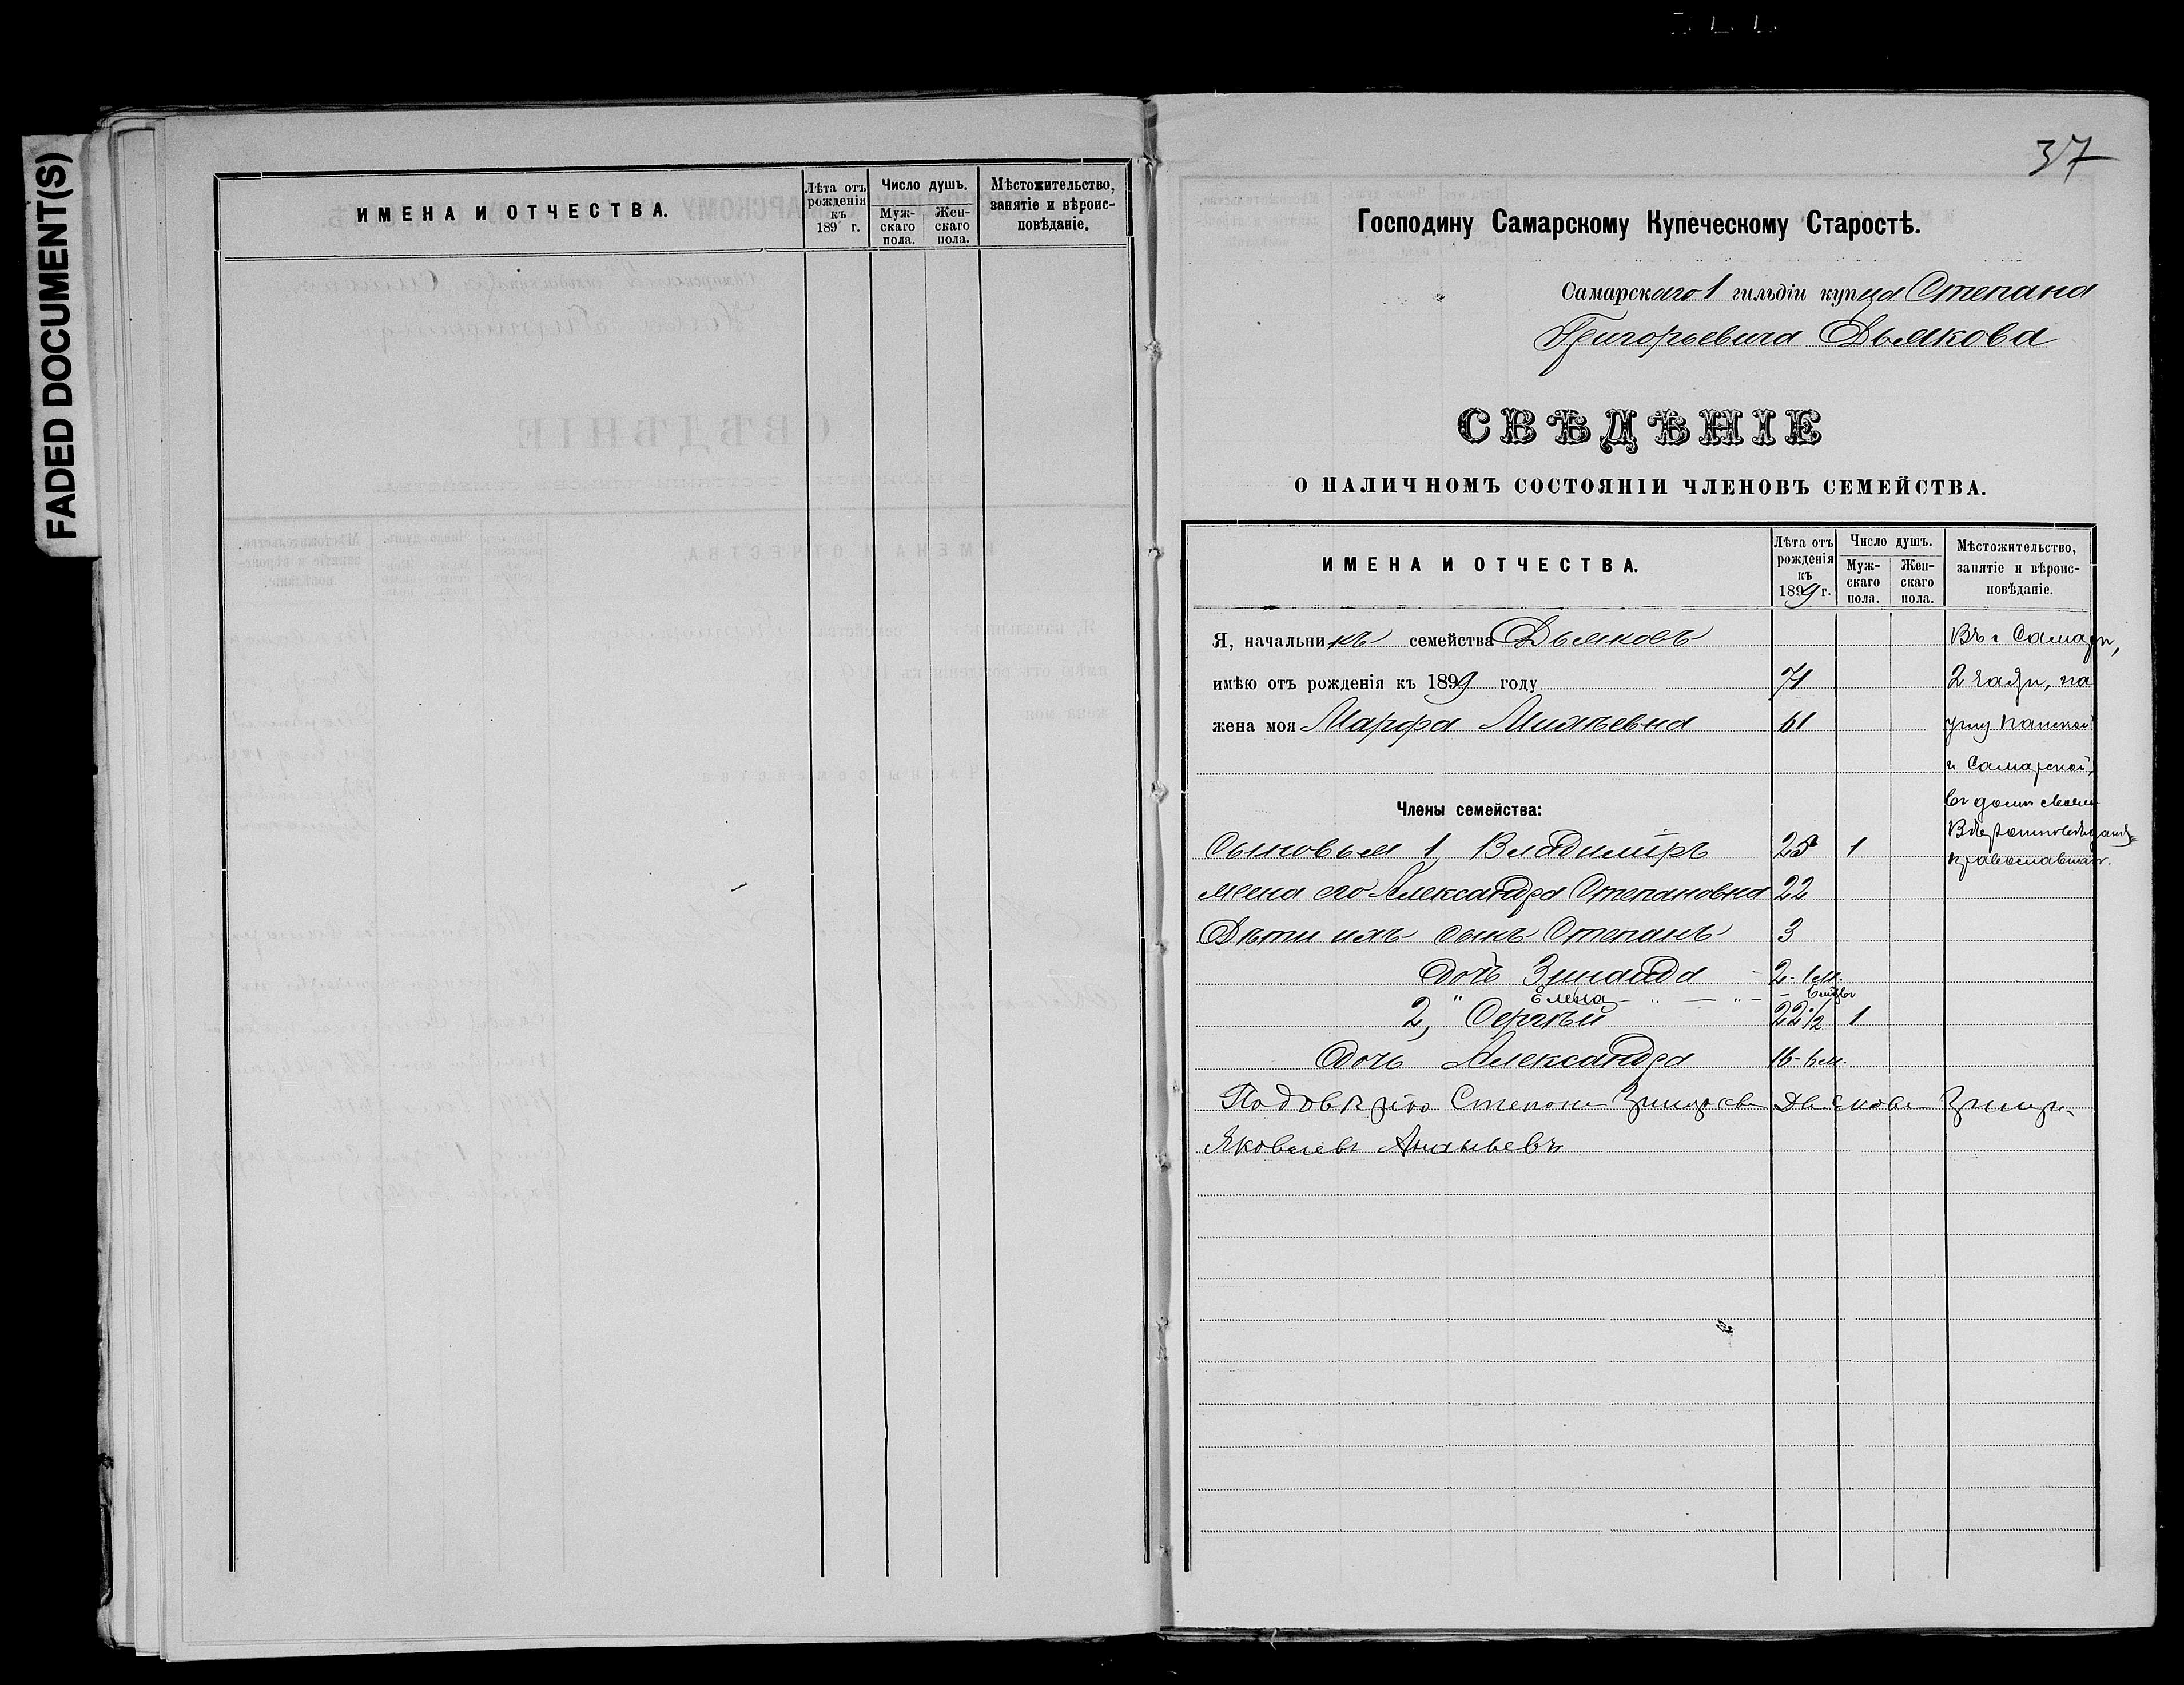 FADED DOCUMENT(S)
ИМЕНА И ОТЧЕСТВА.
Лѣта отъ рожденія къ 189 г.
Число душъ.
Муж-скаго пола.
Жен-скаго пола.
Мѣстожительство, занятіе и вѣроис-повѣданіе.
37
Господину Самарскому Купеческому Старостѣ.
Самарскаго 1 гильдіи купца Степана
Григорьевича Дьякова
СВѢДѢНІЕ
О НАЛИЧНОМЪ СОСТОЯНІИ ЧЛЕНОВЪ СЕМЕЙСТВА.
ИМЕНА И ОТЧЕСТВА.
Лѣта отъ рожденія къ 1899 г.
Число душъ.
Муж-скаго пола.
Жен-скаго пола.
Мѣстожительство, занятіе и вѣроис-повѣданіе.
Я, начальникъ семейства Дьяковъ Въ г Самарѣ,
имѣю отъ рожденія къ 1899 году 71 2 части, на
жена моя Марфа 61 углу Панской
и Самарской,
Члены семейства: въ домѣ своемъ
Вѣроисповѣданія
Сыновья 1, Владиміръ 25 1 православнаго.
жена его Александра Степановна 22
Дѣти ихъ сынъ Степанъ 3
дочь Зинаида 2-1 м.
" Елена
2, Сергѣй 22 1/2 1
дочь Александра 16-6 м.
Степана Дьякова
Яковлевъ Ананьевъ